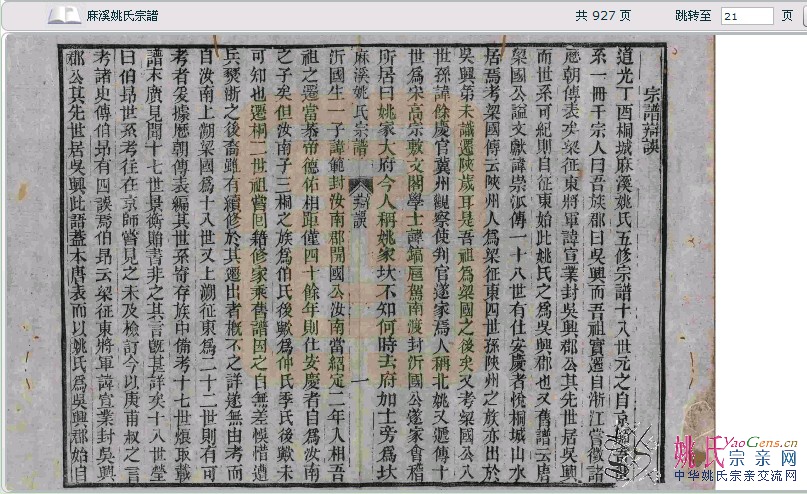 麻溪姚氏宗譜
共 927 页
跳转至 21 页
宗譜辯誤
道光丁酉桐城麻溪姚氏五修宗譜十八世元之自京
系一冊于宗人曰吾族郡曰吳興而吾祖實遷自浙江嘗徵諸
歷朝傳表矣梁征東將軍諱宣業封吳興郡公其先世居吳興
而世系可紀則自征東始此姚氏之為吳興郡也又舊譜云唐
梁國公諡文獻諱崇派傳一十八世有仕安慶者悅桐城山水
居焉考梁國傳云陝州人為梁征東四世孫陝州之族亦出於
吳興第未識遷陝歲耳是吾祖為梁國之後矣又考梁國公八
世孫諱餘慶官冀州觀察使判官遂家焉人稱北姚又遞傳十
世為宋高宗敷文閣學士諱鏞扈駕南渡封沂國公遂家會稽
所居曰姚家大府今人稱姚家坎不知何時去府加土旁為坎
麻溪姚氏宗譜 辯誤 一
沂國生一子諱範封汝南郡開國公汝南當紹定二年人相吾
祖之遷當恭帝德佑相距僅四十餘年則仕安慶者自為汝南
之子矣但汝南子三桐之族為伯氏後歟為仲氏季氏後歟未
可知也遷桐二世祖嘗回籍修家乘舊譜因之自無差悞惜遭
兵燹浙之後裔雖有續修於其遷出者概不之詳遂無由考而
自汝南上溯梁國為十八世又上溯征東為二十二世則有可
考者爰據歷朝傳表編其世系寄存族中備考十七世煐取載
譜末廣見聞十七世景衡貽書非之其言旣甚詳矣十八世瑩
曰伯昂世系考往在京師嘗見之未及檢訂今以庚甫叔之言
考諸史傳伯昂有四誤焉伯昂云梁征東將軍諱宣業封吳興
郡公其先世居吳興此語蓋本唐表而以姚氏為吳興郡始自
姚氏 YaoGens.cn
宗亲网
中华姚氏宗亲交流网